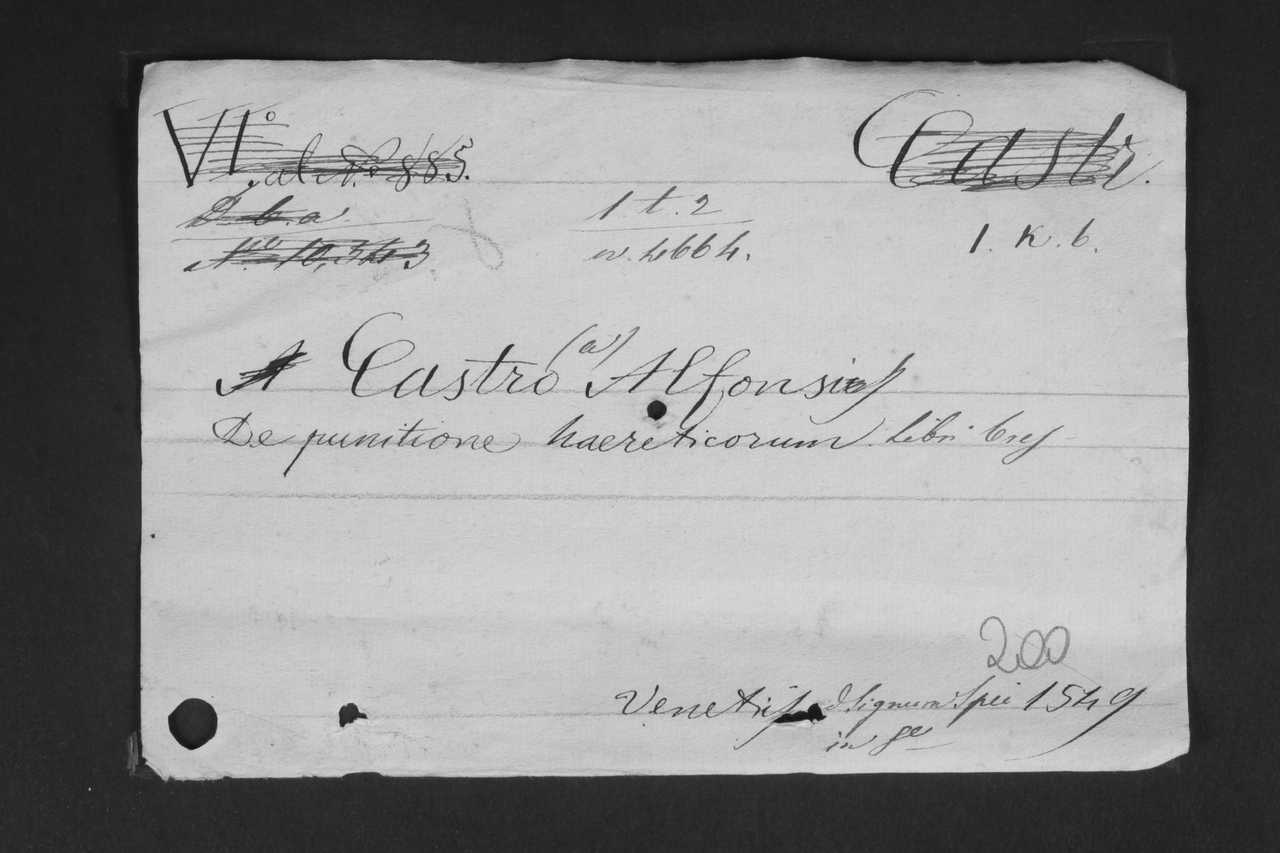 VI.° al N.° 885.
Castr.
D. b. a.
1. t. 2
1. K. 6.
N.ro 10,343
n. 4664.
A Castro (a) Alfonsius
De punitione haereticorum libri tres
200
Venetiis Signum Spei 1549
in 8°